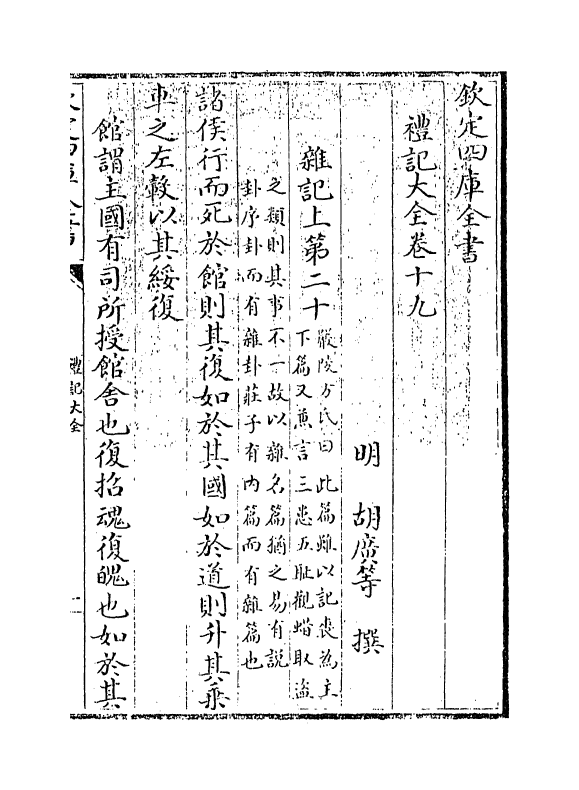 欽定四庫全書
禮記大全卷十九
明 胡廣等 撰
雜記上第二十
嚴陵方氏曰此篇雖以記喪為主
下篇又兼言三患五恥觀蜡取盜
之類則其事不一故以雜名篇猶之易有説
卦序卦而有雜卦莊子有内篇而有雜篇也
諸侯行而死於館則其復如於其國如於道則升其乘
車之左轂以其綏復
館謂主國有司所授館舍也復招魂復魄也如於其
禮記大全
一